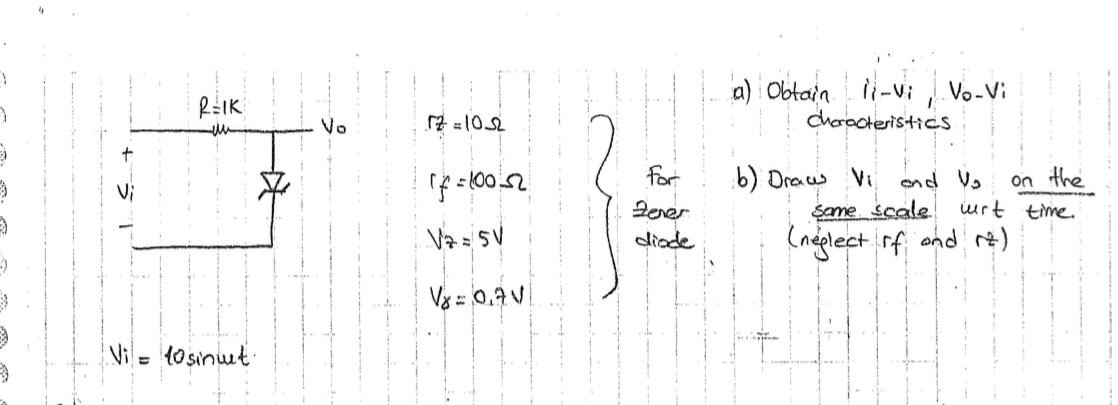 R=1K
Vo
+
Vi
−
Vi = 10sinwt
rz = 10Ω
rf = 100Ω
Vz = 5V
Vγ = 0,7V
For
Zener
diode
a) Obtain ii-Vi , Vo-Vi
characteristics
b) Draw Vi and Vo on the
same scale wrt time.
(neglect rf and rz)